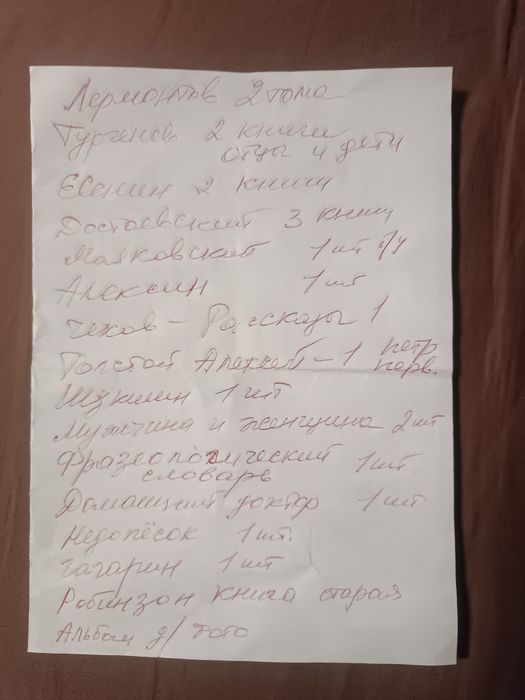 Лермонтов 2 тома
Тургенев 2 книги
Отцы и дети
Есенин 2 книги
Достоевский 3 книги
Маяковский 1 шт б/у
Алексин 1 шт
Чехов – Рассказы 1
Толстой Алексей – 1 петр
перв.
Шукшин 1 шт
Мужчина и женщина 2 шт
Фразеологический 1 шт.
словарь
Домашний доктор 1 шт
Недопёсок 1 шт.
Гагарин 1 шт
Робинзон книга старая
Альбом д/фото